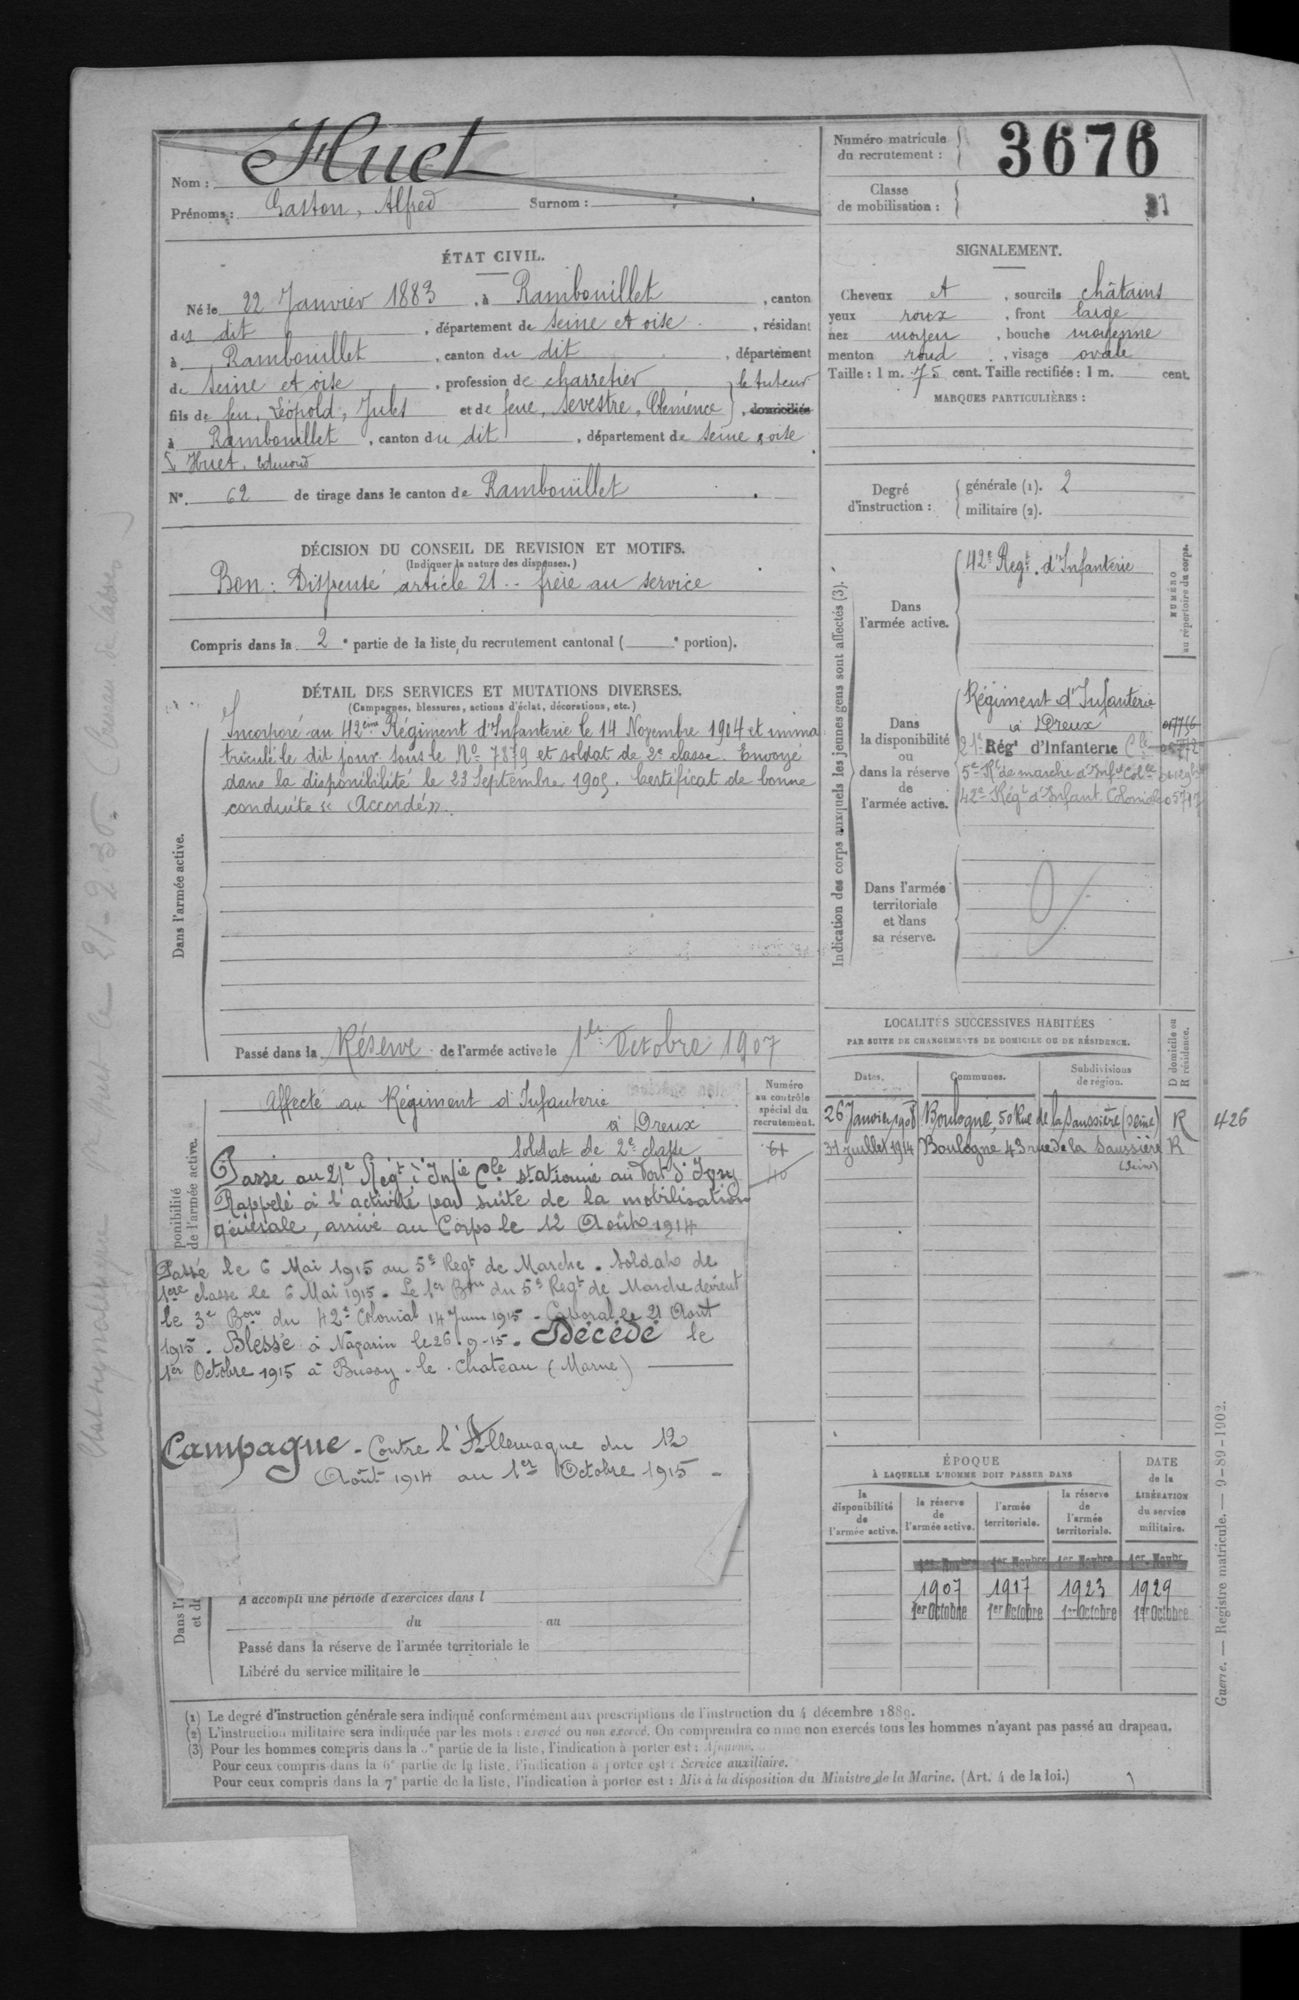 Nom : Huet
Prénoms : Gaston, Alfred Surnom :
Numéro matricule du recrutement : 3676
Classe de mobilisation :
ÉTAT CIVIL.
Né le 22 Janvier 1883, à Rambouillet, canton
du dit, département de Seine et Oise, résidant
à Rambouillet, canton du dit, département
de Seine et Oise, profession de charretier
fils de feu, Léopold, Jules et de feue, Sevestre, Clémence } le tuteur, domiciliés
à Rambouillet, canton du dit, département de Seine & Oise
Huet, Edmond
N° 62 de tirage dans le canton de Rambouillet
SIGNALEMENT.
Cheveux et, sourcils châtains
yeux roux, front large
nez moyen, bouche moyenne
menton rond, visage ovale
Taille : 1 m. 75 cent. Taille rectifiée : 1 m. cent.
MARQUES PARTICULIÈRES :
Degré d'instruction : { générale (1). 2
militaire (2).
DÉCISION DU CONSEIL DE REVISION ET MOTIFS.
(Indiquer la nature des dispenses.)
Bon : Dispensé article 21 - frère au service
Compris dans la 2e partie de la liste du recrutement cantonal ( e portion).
DÉTAIL DES SERVICES ET MUTATIONS DIVERSES.
(Campagnes, blessures, actions d'éclat, décorations, etc.)
Dans l'armée active.
Incorporé au 42ème Régiment d'Infanterie le 14 Novembre 1904 et imma
triculé le dit jour sous le No 7879 et soldat de 2e classe. Envoyé
dans la disponibilité le 23 Septembre 1905. Certificat de bonne
conduite « Accordé ».
Passé dans la Réserve de l'armée active le 1er Octobre 1907
Numéro au contrôle spécial du recrutement.
Affecté au Régiment d'Infanterie
à Dreux
soldat de 2e classe
Passé au 21e Régt d'Infie Cle stationné au Fort d'Ivry
Rappelé à l'activité par suite de la mobilisation
générale, arrivé au Corps le 12 Août 1914
Passé le 6 Mai 1915 au 5e Regt de Marche. Soldat de
1ere classe le 6 Mai 1915. Le 1er Bon du 5e Regt de Marche devient
le 3e Bon du 42e Colonial 14 Juin 1915 - Caporal le 21 Aout
1915. Blessé à Navarin le 26-9-15. Décédé le
1er Octobre 1915 à Bussy-le-Chateau (Marne)
Campagne - Contre l'Allemagne du 12
Août 1914 au 1er Octobre 1915 -
A accompli une période d'exercices dans l
du au
Passé dans la réserve de l'armée territoriale le
Libéré du service militaire le
Indication des corps auxquels les jeunes gens sont affectés (3).
NUMÉRO au répertoire du corps.
Dans l'armée active.
42e Regt. d'Infanterie
Dans la disponibilité ou dans la réserve de l'armée active.
Régiment d'Infanterie
à Dreux
21e Régt d'Infanterie Cle
5e Rt de marche d'Infie Colle
42e Régt d'Infant Coloniale 05717
Dans l'armée territoriale et dans sa réserve.
LOCALITÉS SUCCESSIVES HABITÉES
PAR SUITE DE CHANGEMENTS DE DOMICILE OU DE RÉSIDENCE.
Dates. Communes. Subdivisions de région. D domicile ou R résidence.
26 Janvier 1908 Boulogne, 50 Rue de la Saussière (Seine) R 426
31 Juillet 1914 Boulogne 43 rue de la Saussière (Seine) R
ÉPOQUE
À LAQUELLE L'HOMME DOIT PASSER DANS
DATE de la LIBÉRATION du service militaire.
la disponibilité de l'armée active. la réserve de l'armée active. l'armée territoriale. la réserve de l'armée territoriale.
1er Novbre 1er Novbre 1er Novbre 1er Novbr
1907 1917 1923 1929
1er Octobre 1er Octobre 1er Octobre 1er Octobre
Guerre. — Registre matricule. — 9-89-1902.
(1) Le degré d'instruction générale sera indiqué conformément aux prescriptions de l'instruction du 4 décembre 1889.
(2) L'instruction militaire sera indiquée par les mots : exercé ou non exercé. On comprendra comme non exercés tous les hommes n'ayant pas passé au drapeau.
(3) Pour les hommes compris dans la 5e partie de la liste, l'indication à porter est : Ajourné.
Pour ceux compris dans la 6e partie de la liste, l'indication à porter est : Service auxiliaire.
Pour ceux compris dans la 7e partie de la liste, l'indication à porter est : Mis à la disposition du Ministre de la Marine. (Art. 4 de la loi.)